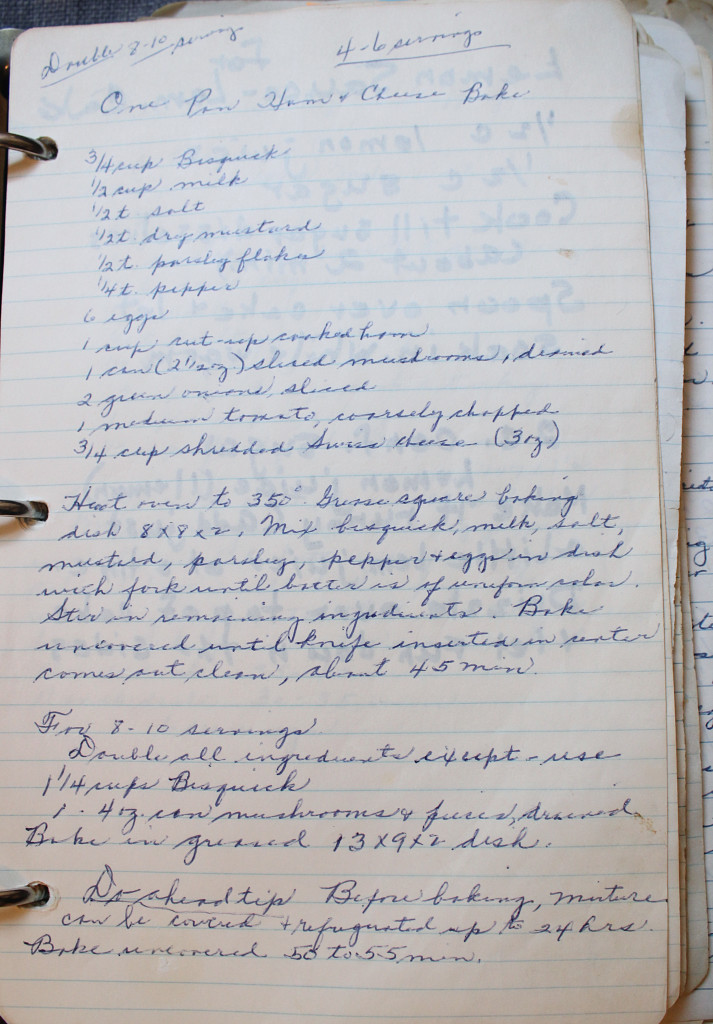 Double 8-10 servings
4-6 servings
One Pan Ham & Cheese Bake
3/4 cup Bisquick
1/2 cup milk
1/2 t. salt
1/2 t. dry mustard
1/2 t. parsley flakes
1/4 t. pepper
6 eggs
1 cup cut-up cooked ham
1 can (2 1/2 oz) sliced mushrooms, drained
2 green onions, sliced
1 medium tomato, coarsely chopped
3/4 cup shredded Swiss cheese (3 oz)
Heat oven to 350° Grease square baking
dish 8x8x2. Mix bisquick, milk, salt,
mustard, parsley, pepper + eggs in dish
with fork until batter is of uniform color.
Stir in remaining ingredients. Bake
uncovered until knife inserted in center
comes out clean, about 45 min.
For 8-10 servings
Double all ingredients except - use
1 1/4 cups Bisquick
1 - 4 oz. can mushrooms & pieces, drained
Bake in greased 13x9x2 dish.
Do ahead tip Before baking, mixture
can be covered + refrigerated up to 24 hrs.
Bake uncovered 50 to 55 min.